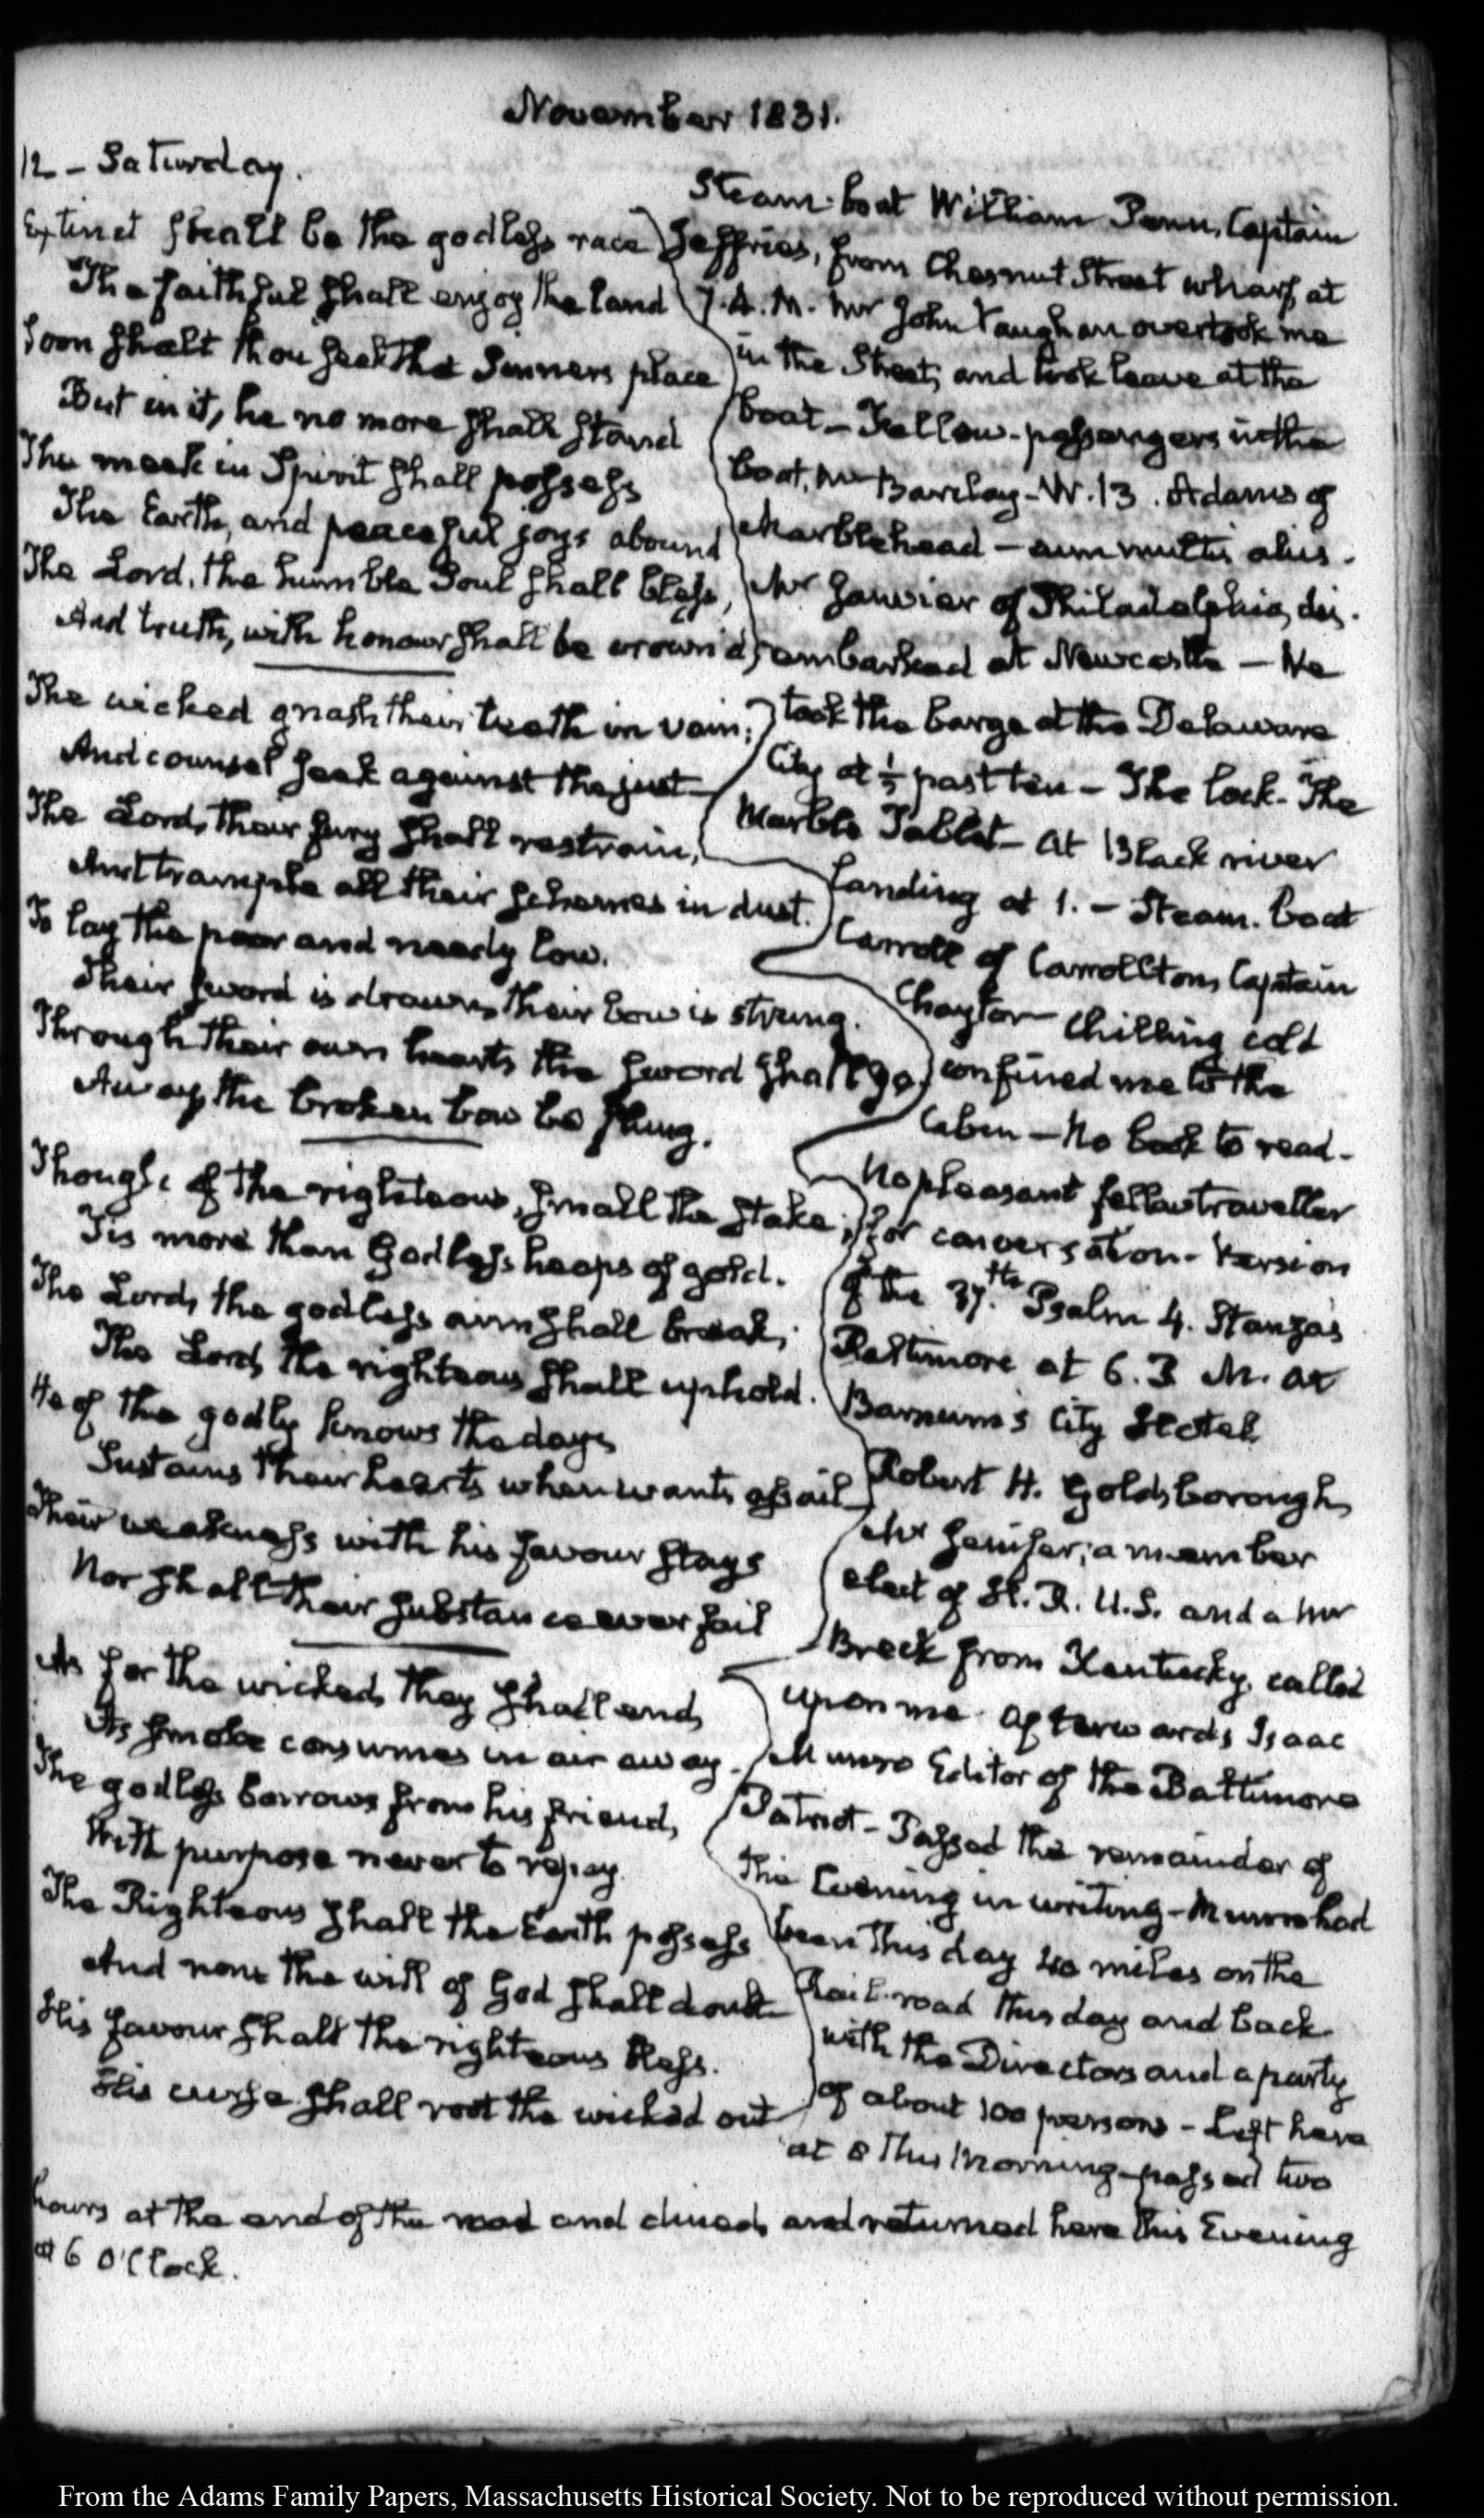 November 1831.
12 - Saturday.
Extinct shall be the godless race
The faithful shall enjoy the land
Soon shalt thou seek the Sinners place
But in it, he no more shall stand
The meek in Spirit shall possess
The Earth, and peaceful joys abound
The Lord, the humble Soul shall bless,
And truth, with honour shall be crown'd
The wicked gnash their teeth in vain;
And counsel seek against the just
The Lord, their fury shall restrain,
And trample all their schemes in dust.
To lay the poor and needy low.
Their sword is drawn, their bow is strung.
Through their own hearts the sword shall go,
Away, the broken bow be flung.
Though of the righteous, small the stake;
Tis more than Godless heaps of gold.
The Lord, the godless arm shall break;
The Lord, the righteous shall uphold.
He of the godly knows the days
Sustains their hearts when wants assail
Their weakness with his favour stays
Nor shall their substance ever fail
As for the wicked, they shall end,
As smoke consumes in air away.
The godless borrows from his friend,
With purpose never to repay.
The Righteous shall the Earth possess
And none the will of God shall doubt
His favour shall the righteous bless.
His curse shall root the wicked out
Steam-boat William Penn, Captain
Jeffries, from Chesnut Street wharf, at
7. A. M. Mr John Vaughan overtook me
in the Street, and took leave at the
boat - Fellow-passengers in the
boat, Mr Barclay - W. B. Adams of
Marblehead - cum multis aliis.
Mr Janvier of Philadelphia, dis-
embarked at Newcastle - We
took the barge at the Delaware
City at ½ past ten - The lock. The
Marble Tablet - At Black river
Landing at 1. - Steam-boat
Carroll of Carrollton, Captain
Chaytor chilling cold
confined me to the
Cabin - No book to read -
No pleasant fellow traveller
for conversation - Version
of the 37.th Psalm 4. Stanzas
Baltimore at 6. P. M. at
Barnum's City Hotel.
Robert H. Goldsborough,
Mr Jenifer, a member
elect of H. R. U.S. and a Mr
Breck from Kentucky, called
upon me. Afterwards Isaac
Munro Editor of the Baltimore
Patriot - Passed the remainder of
the Evening in writing - Munro had
been this day 40 miles on the
Rail-road this day and back
with the Directors and a party
of about 100 persons - Left here
at 8 this Morning - passed two
hours at the end of the road and dined, and returned here this Evening
at 6 O'Clock.
From the Adams Family Papers, Massachusetts Historical Society. Not to be reproduced without permission.